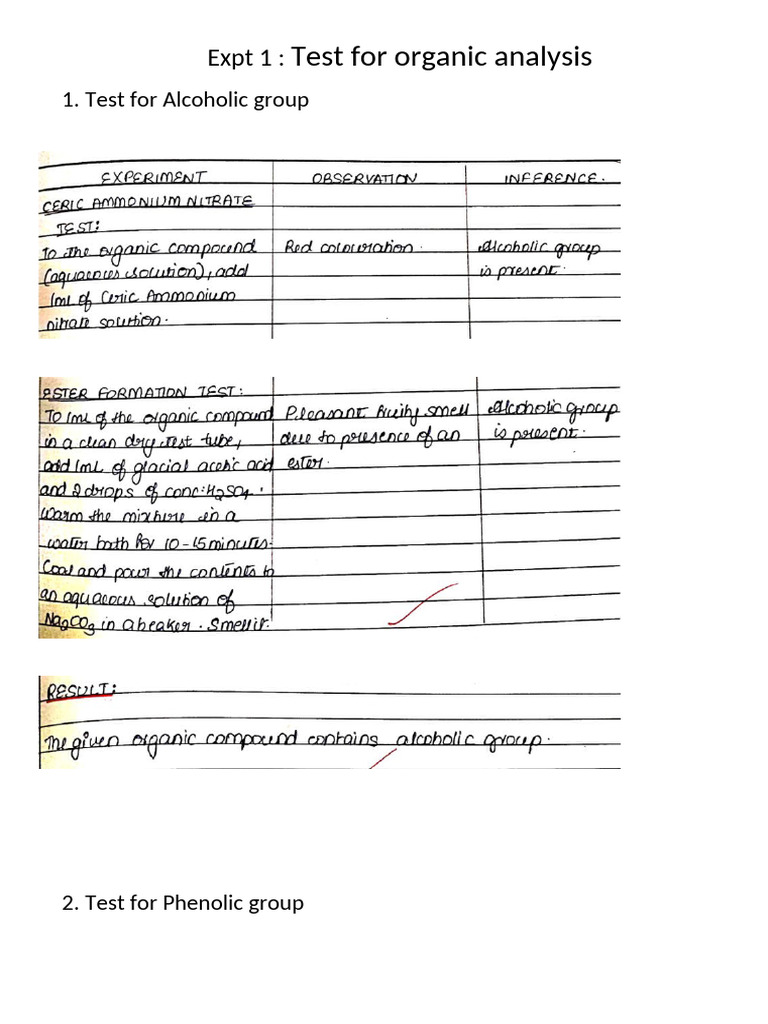 Expt 1 : Test for organic analysis
1. Test for Alcoholic group
EXPERIMENT OBSERVATION INFERENCE.
CERIC AMMONIUM NITRATE
TEST:
To the organic compound Red colouration. Alcoholic group
(aquaeous solution), add is present.
1ml of Ceric Ammonium
nitrate solution.
ESTER FORMATION TEST:
To 1ml of the organic compound Pleasant fruity smell Alcoholic group
in a clean dry test tube, due to presence of an is present.
add 1mL of glacial acetic acid ester.
and 2 drops of conc: H2SO4.
Warm the mixture in a
water bath for 10-15 minutes.
Cool and pour the contents to
an aquaeous solution of
Na2CO3 in a beaker. Smell it.
RESULT:
The given organic compound contains alcoholic group.
2. Test for Phenolic group